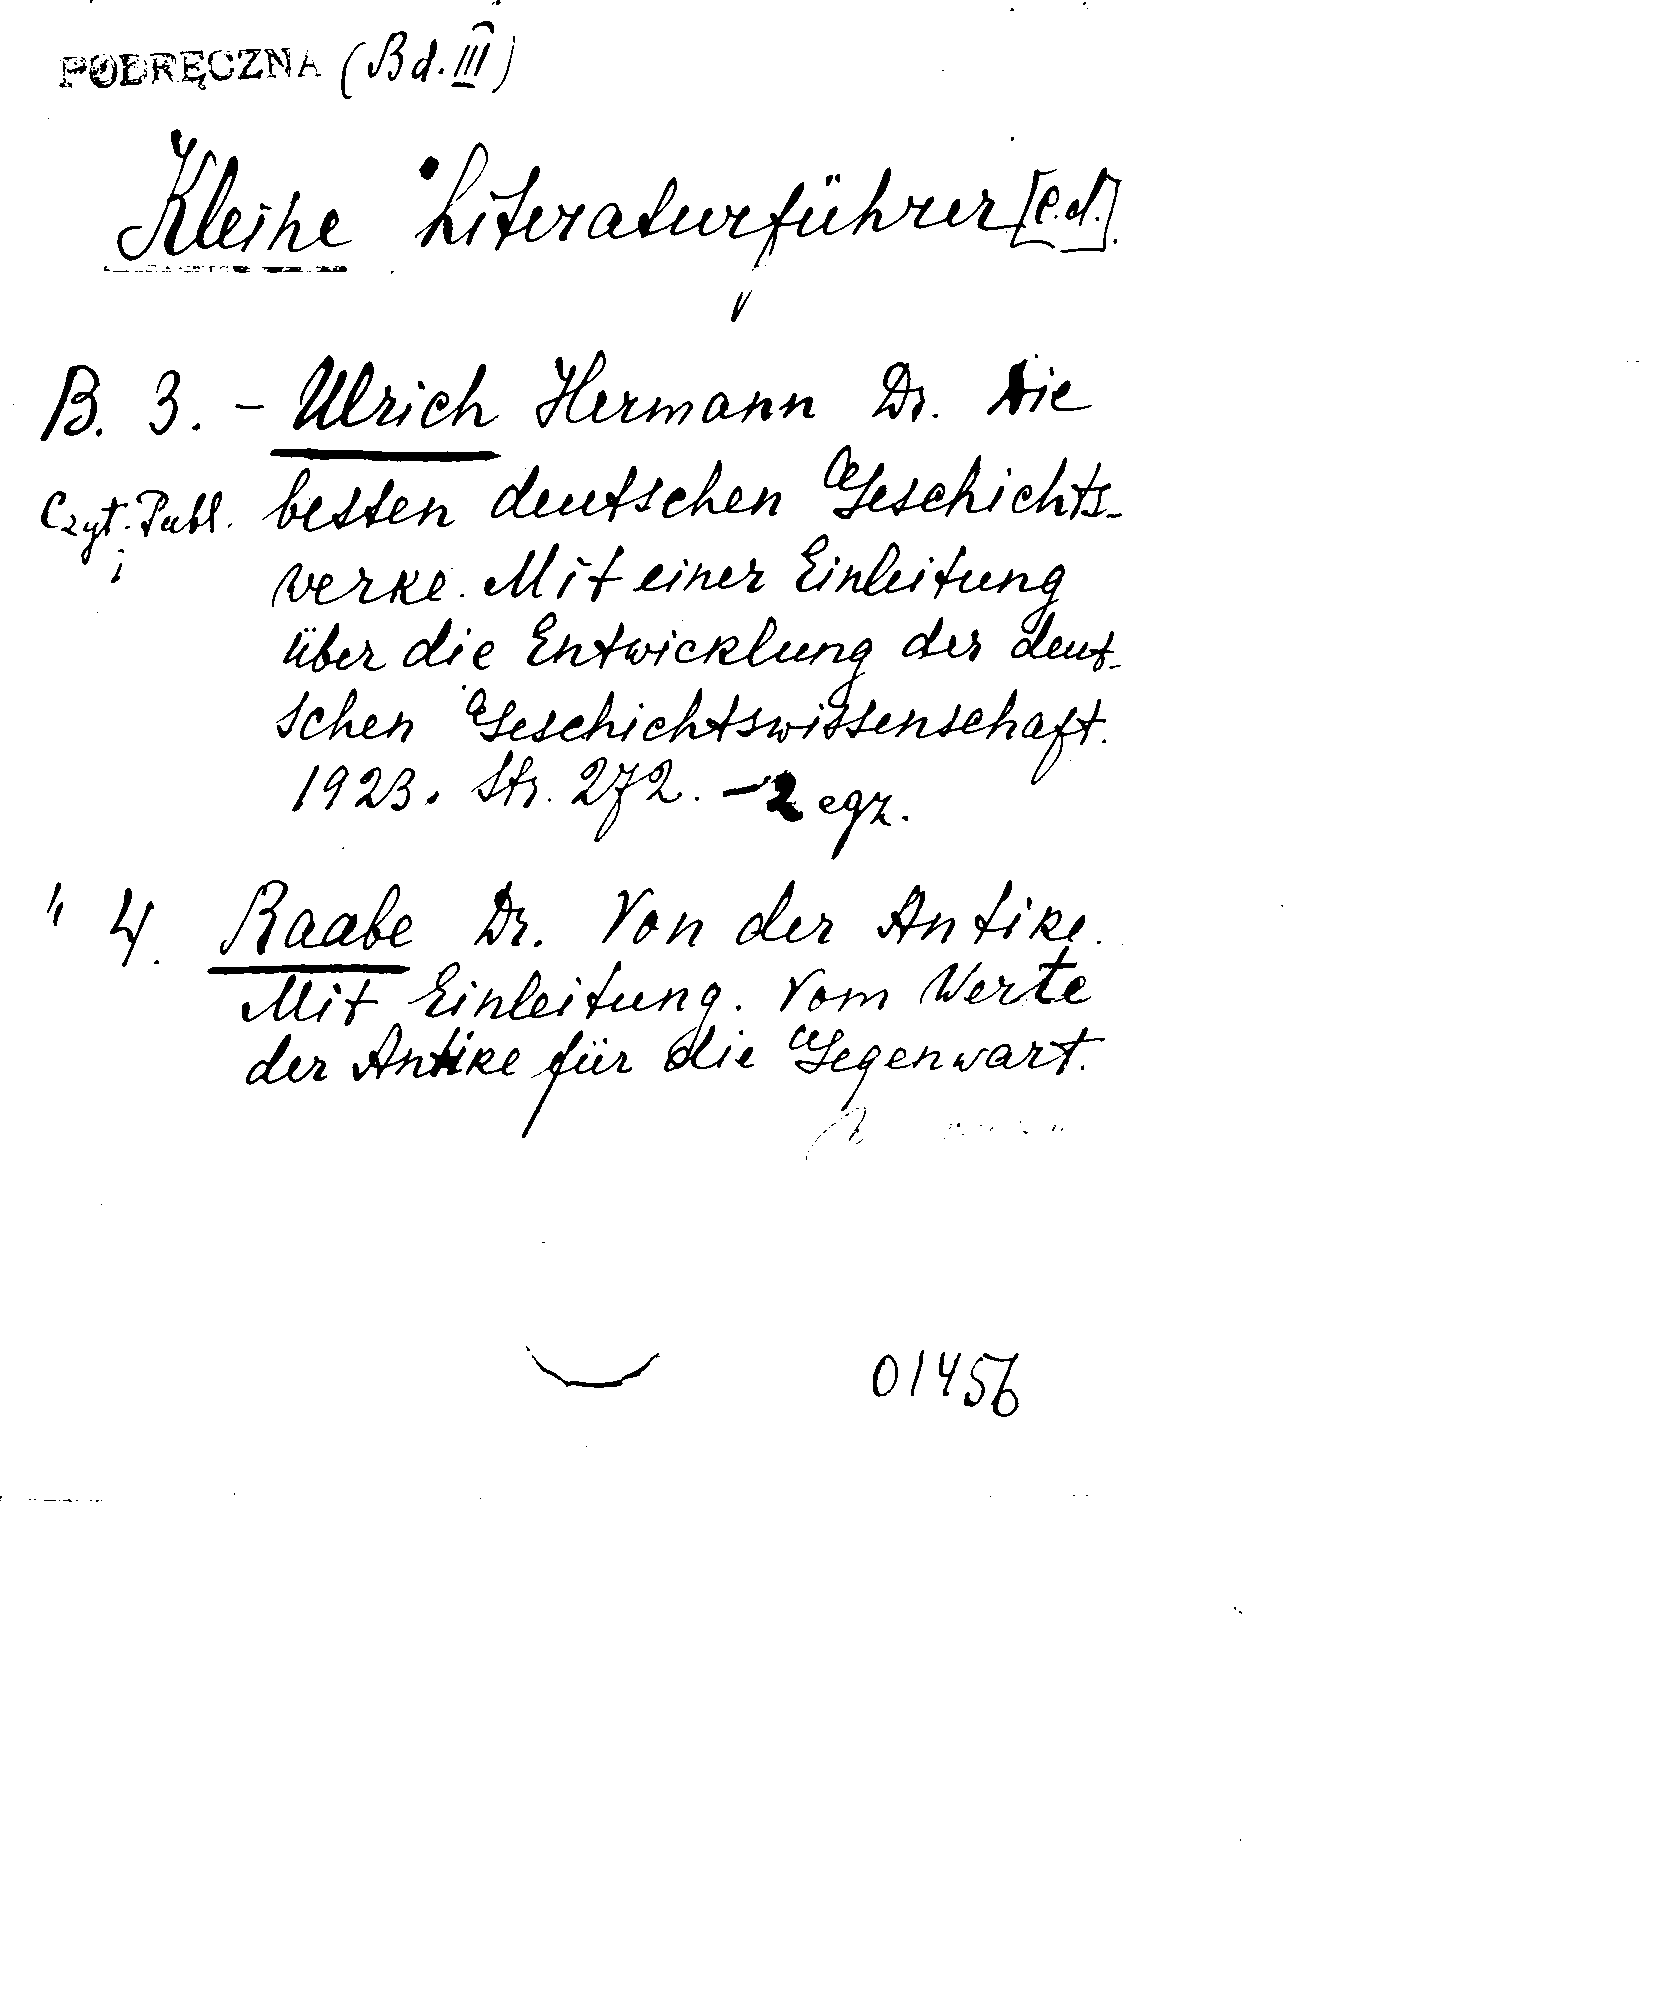 PODRĘCZNA (Bd. III)
Kleine Literaturführer [c.d.].
B. 3. - Ulrich Hermann Dr. Die
Czyt. Publ. besten deutschen Geschichts-
i
werke. Mit einer Einleitung
über die Entwicklung der deut-
schen Geschichtswissenschaft.
1923. Str. 272. - 2 egz.
" 4. Raabe Dr. Von der Antike.
Mit Einleitung. Vom Werte
der Antike für die Gegenwart.
01456